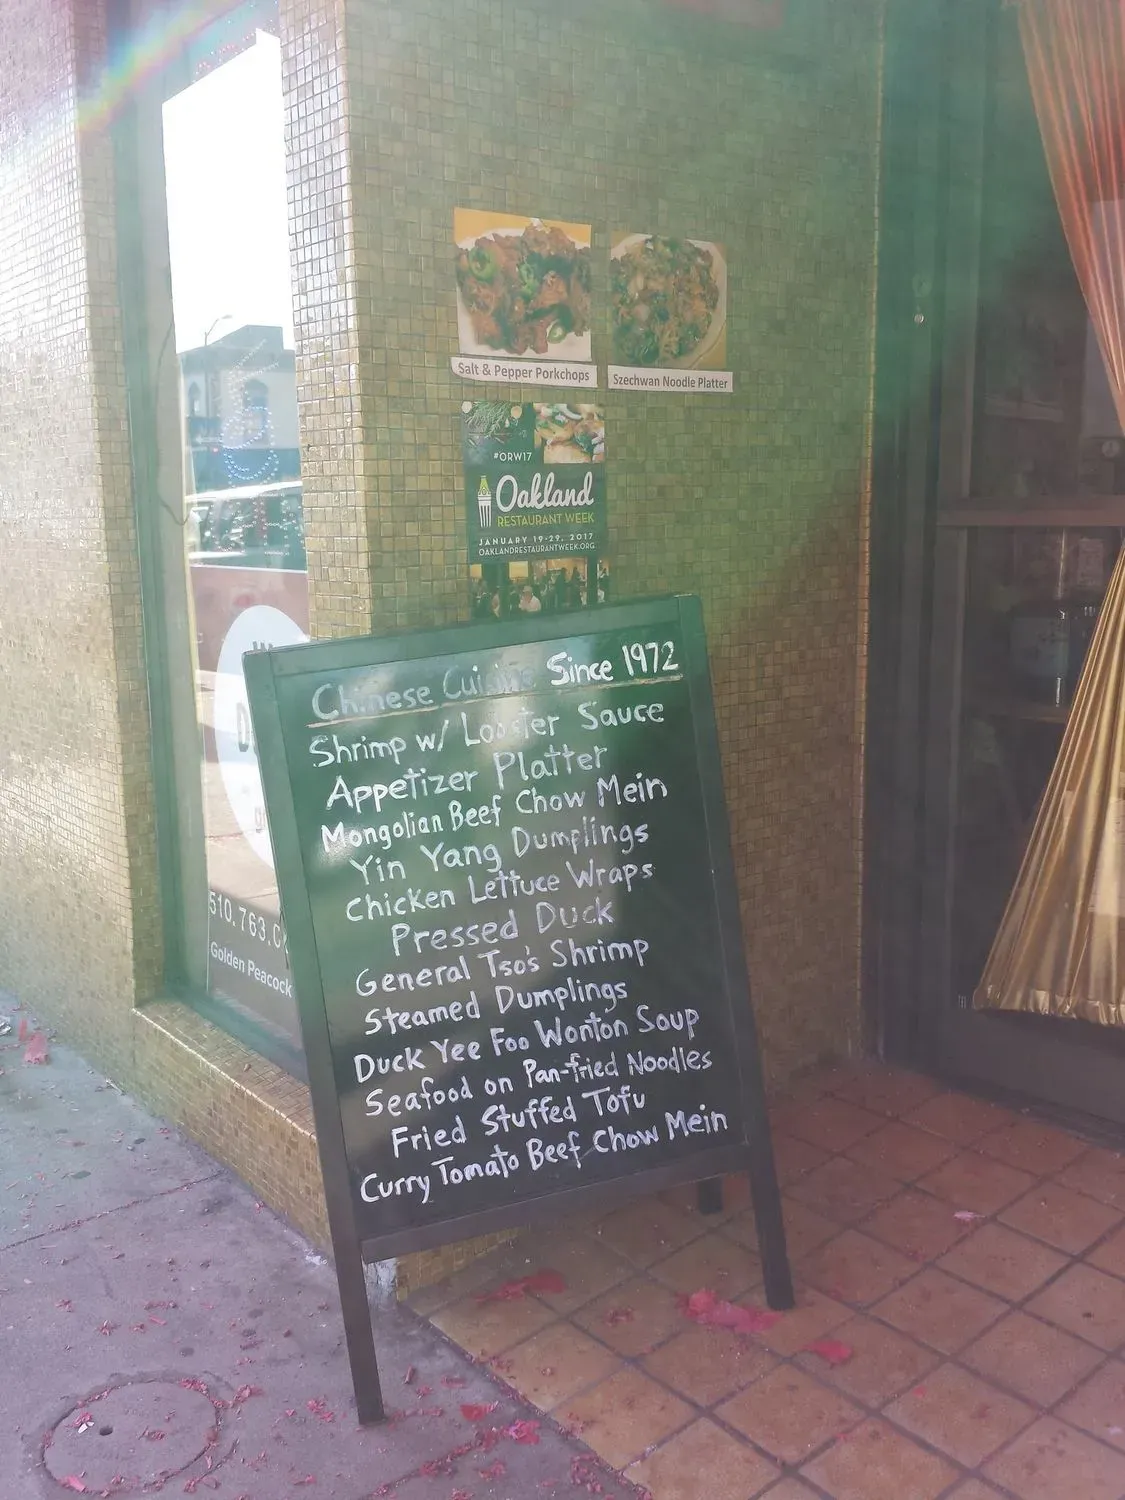 Salt & Pepper Porkchops
Szechwan Noodle Platter
#ORW17
Oakland
RESTAURANT WEEK
JANUARY 19-29, 2017
OAKLANDRESTAURANTWEEK.ORG
Chinese Cuisine Since 1972
Shrimp w/ Lobster Sauce
Appetizer Platter
Mongolian Beef Chow Mein
Yin Yang Dumplings
Chicken Lettuce Wraps
Pressed Duck
General Tso's Shrimp
Steamed Dumplings
Duck Yee Foo Wonton Soup
Seafood on Pan-fried Noodles
Fried Stuffed Tofu
Curry Tomato Beef Chow Mein
510.763.
Golden Peacock